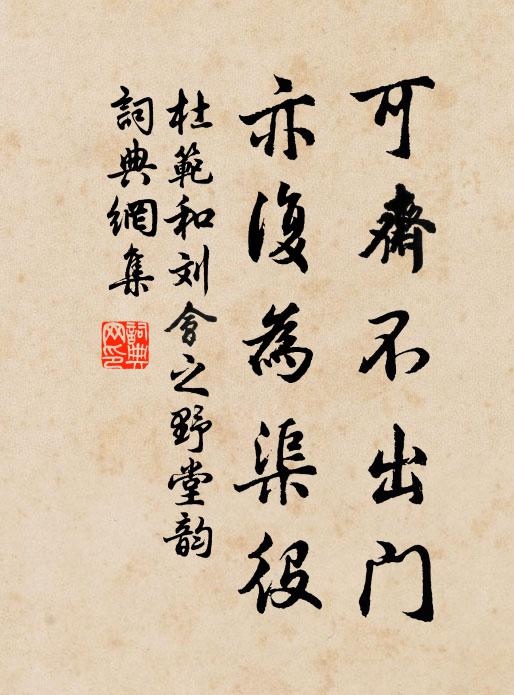 可齋不出門
亦復為渠役
杜範和刘會之野堂韵
詞典網集
詞典网印